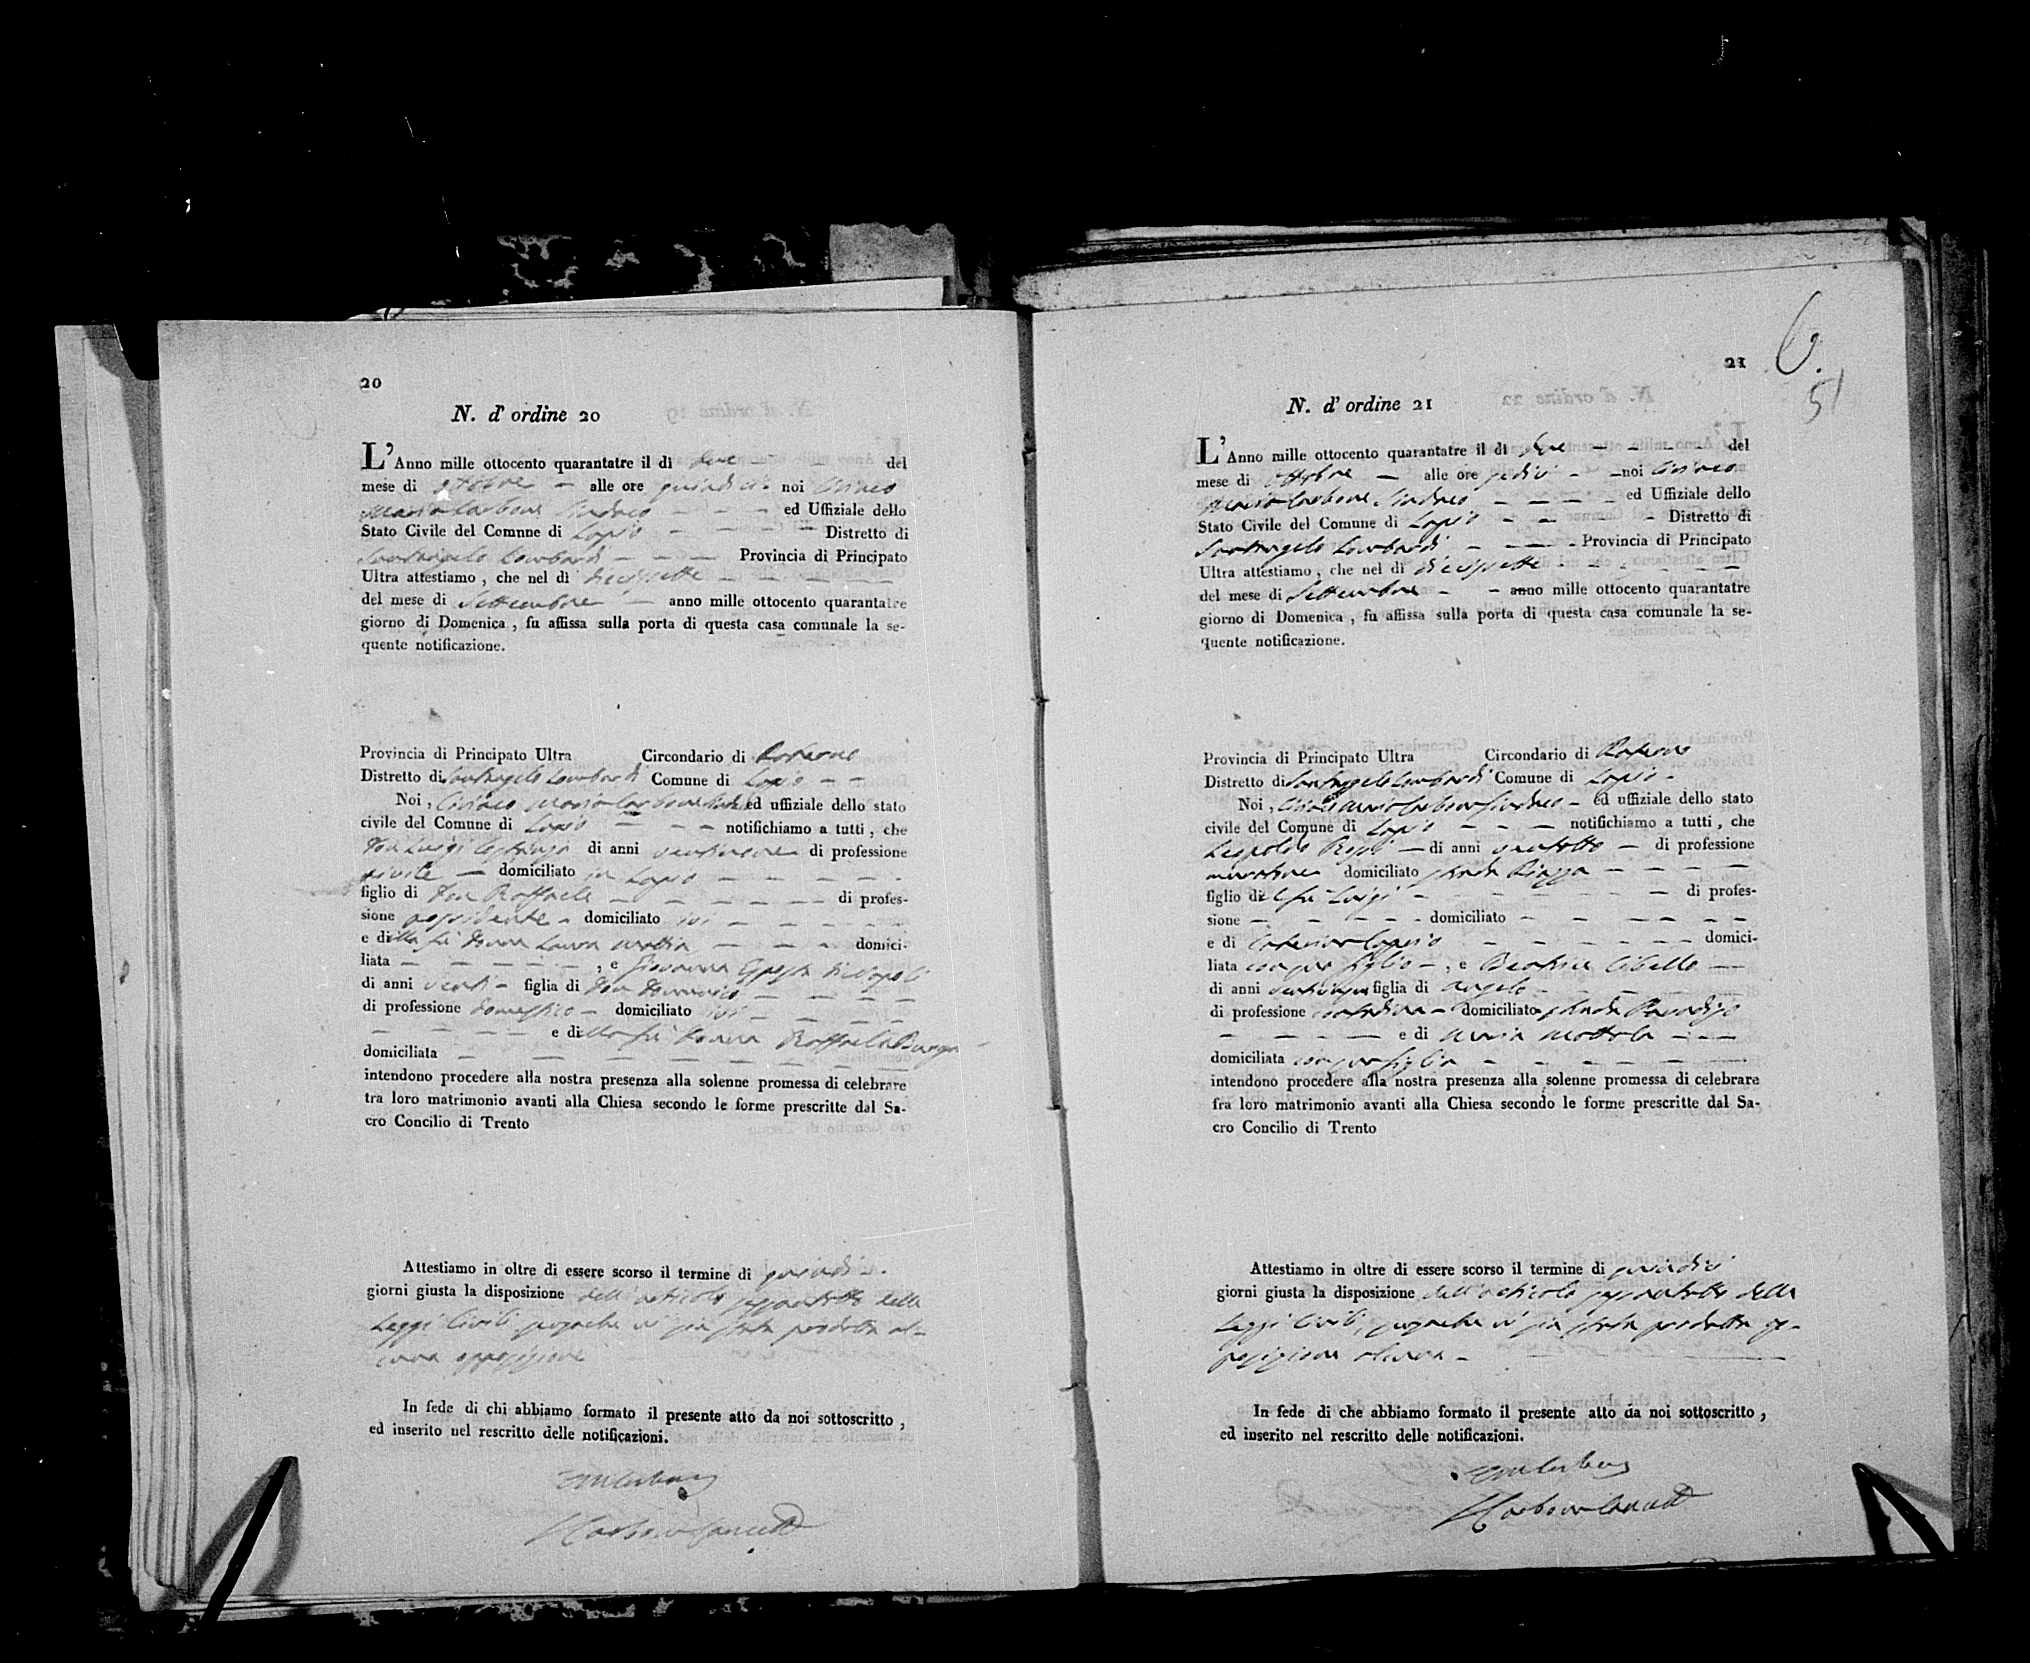 20
N. d' ordine 20
L'Anno mille ottocento quarantatre il di due del
mese di ottobre alle ore quindici noi Ciriaco
Maria Carbone Sindaco ed Uffiziale dello
Stato Civile del Comune di Lapio Distretto di
Santangelo Lombardi Provincia di Principato
Ultra attestiamo , che nel di diecisette
del mese di Settembre anno mille ottocento quarantatre
giorno di Domenica , fu affissa sulla porta di questa casa comunale la se-
quente notificazione.
Provincia di Principato Ultra Circondario di Paterno
Distretto di Santangelo Lombardi Comune di Lapio
Noi , Ciriaco Maria Carbone ed uffiziale dello stato
civile del Comune di Lapio notifichiamo a tutti , che
Don Luigi di anni di professione
civile domiciliato in Lapio
figlio di Don Raffaele di profes-
sione domiciliato ivi
e di lla fu Donna Laura domici-
liata , e Giovanna
di anni venti figlia di Don Domenico
di professione domiciliato ivi
e di lla fu Donna Raffaela
domiciliata
intendono procedere alla nostra presenza alla solenne promessa di celebrare
tra loro matrimonio avanti alla Chiesa secondo le forme prescritte dal Sa-
cro Concilio di Trento
Attestiamo in oltre di essere scorso il termine di quindici
giorni giusta la disposizione dell'articolo sessantotto delle
Leggi Civili, senza che vi sia stata prodotta al-
cuna opposizione
In fede di chi abbiamo formato il presente atto da noi sottoscritto ,
ed inserito nel rescritto delle notificazioni.
21
6.
51
N. d' ordine 21
L'Anno mille ottocento quarantatre il di due del
mese di ottobre alle ore sedici noi Ciriaco
Maria Carbone Sindaco ed Uffiziale dello
Stato Civile del Comune di Lapio Distretto di
Santangelo Lombardi Provincia di Principato
Ultra attestiamo , che nel di diecisette
del mese di Settembre anno mille ottocento quarantatre
giorno di Domenica , fu affissa sulla porta di questa casa comunale la se-
quente notificazione.
Provincia di Principato Ultra Circondario di Paterno
Distretto di Santangelo Lombardi Comune di Lapio
Noi , Ciriaco Maria Carbone Sindaco ed uffiziale dello stato
civile del Comune di Lapio notifichiamo a tutti , che
Leopoldo di anni ventotto di professione
domiciliato strada Piazza
figlio di l fu Luigi di profes-
sione domiciliato
e di Caterina domici-
liata con suo figlio , e Beatrice
di anni venticinque figlia di Angelo
di professione contadina domiciliato strada
e di Maria Mottola
domiciliata con sua figlia
intendono procedere alla nostra presenza alla solenne promessa di celebrare
fra loro matrimonio avanti alla Chiesa secondo le forme prescritte dal Sa-
cro Concilio di Trento
Attestiamo in oltre di essere scorso il termine di quindici
giorni giusta la disposizione dell'articolo sessantotto delle
Leggi Civili, senza che vi sia stata prodotta op-
posizione alcuna
In fede di che abbiamo formato il presente atto da noi sottoscritto ,
ed inserito nel rescritto delle notificazioni.